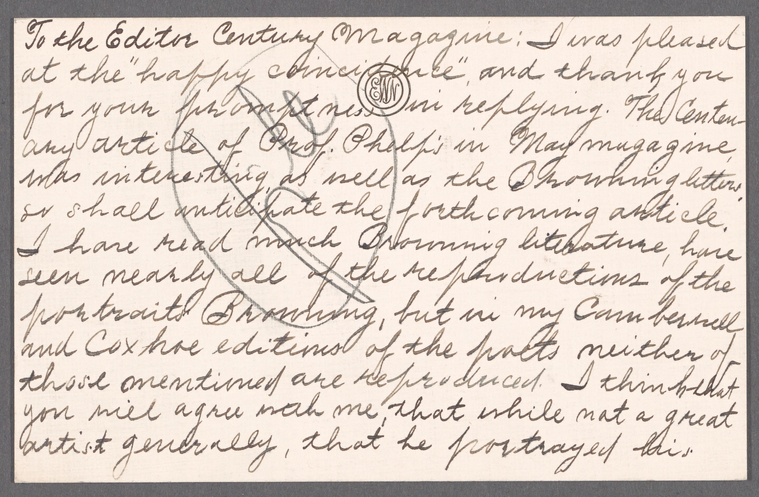 To the Editor Century Magazine: I was pleased
at the "happy coincidence", and thank you
for your promptness in replying. The Centen-
ary article of Prof. Phelp's in May magazine,
was interesting, as well as the Browning letters,
so shall anticipate the forthcoming article.
I have read much Browning literature, have
seen nearly all of the reproductions of the
portraits Browning, but in my Camberwell
and Coxhoe editions of the poets neither of
those mentioned are reproduced. I think that
you will agree with me, that while not a great
artist generally, that he portrayed his